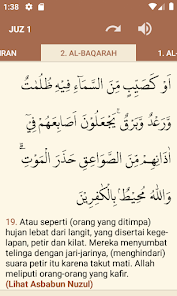 1:38
JUZ 1
IRAN
2. AL-BAQARAH
اَوْ كَصَيِّبٍ مِّنَ السَّمَاۤءِ فِيْهِ ظُلُمٰتٌ
وَّرَعْدٌ وَّبَرْقٌۚ يَجْعَلُوْنَ اَصَابِعَهُمْ فِيْٓ
اٰذَانِهِمْ مِّنَ الصَّوَاعِقِ حَذَرَ الْمَوْتِۗ
وَاللّٰهُ مُحِيْطٌۢ بِالْكٰفِرِيْنَ
19. Atau seperti (orang yang ditimpa)
hujan lebat dari langit, yang disertai kege-
lapan, petir dan kilat. Mereka menyumbat
telinga dengan jari-jarinya, (menghindari)
suara petir itu karena takut mati. Allah
meliputi orang-orang yang kafir.
(Lihat Asbabun Nuzul)